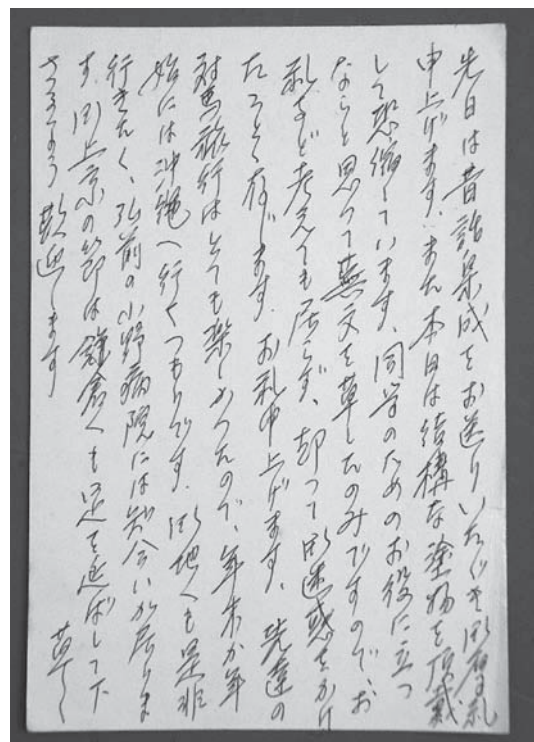 先日は昔話集成をお送りいたゞき御厚礼
申上げます、また本日は結構な塗物を頂戴
して恐縮しています、同学のためのお役に立つ
ならと思つて蕪文を草したのみですので、お
礼など考えても居らず、却つて御迷惑をかけ
たことゝ存じます、お礼申上げます、先達の
対馬旅行はとても楽しかつたので、年末か年
始には沖縄へ行くつもりです、御地へも是非
行きたく、弘前の小野病院には知合いが居りま
す、御上京の節は鎌倉へも足を延ばして下
さるやう 歓迎します 草々